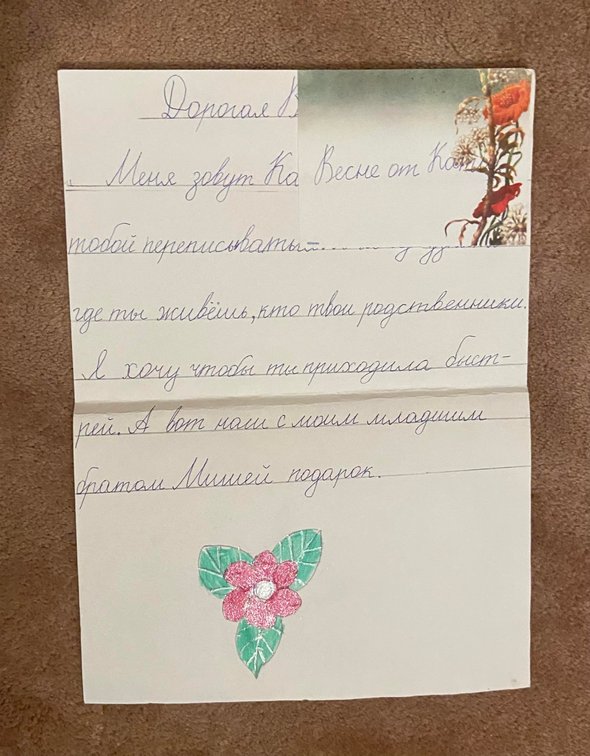 Дорогая В
Меня зовут Ка
Весне от Кат
тобой переписывать
где ты живёшь, кто твои родственники.
Я хочу чтобы ты приходила быст-
рей. А вот наш с моим младшим
братом Мишей подарок.